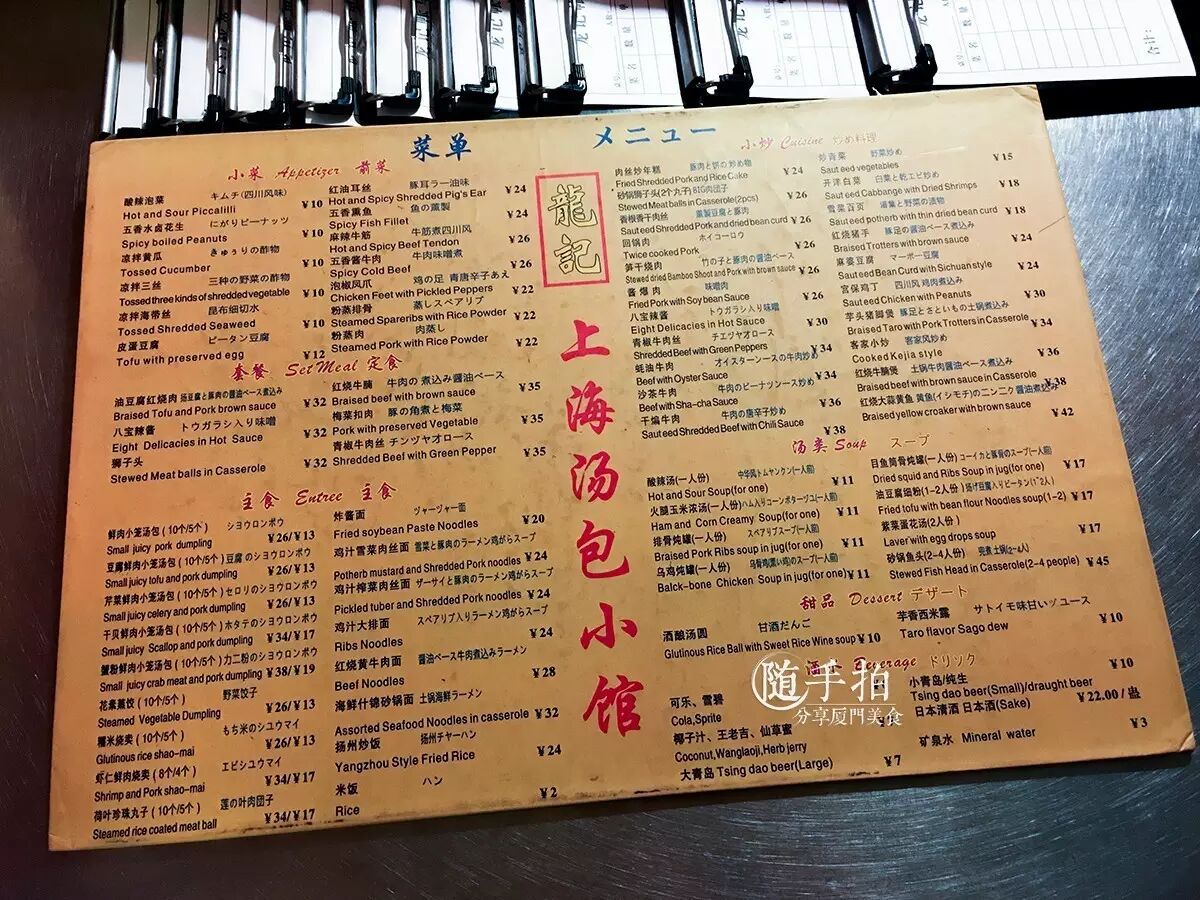 菜单
メニュー
小菜 Appetizer 前菜
酸辣泡菜 キムチ(四川风味)
Hot and Sour Piccalilli ¥10
五香水卤花生 にがりピーナッツ
Spicy boiled Peanuts ¥10
凉拌黄瓜 きゅうりの酢物
Tossed Cucumber ¥10
凉拌三丝 三种の野菜の酢物
Tossed three kinds of shredded vegetable ¥10
凉拌海带丝 昆布细切水
Tossed Shredded Seaweed ¥10
皮蛋豆腐 ピータン豆腐
Tofu with preserved egg ¥12
红油耳丝 豚耳ラー油味
Hot and Spicy Shredded Pig's Ear ¥24
五香熏鱼 鱼の薰製
Spicy Fish Fillet ¥24
麻辣牛筋 牛筋煮四川风
Hot and Spicy Beef Tendon ¥26
五香酱牛肉 牛肉味噌煮
Spicy Cold Beef ¥26
泡椒凤爪 鸡の足 青唐辛子あえ
Chicken Feet with Pickled Peppers ¥22
粉蒸排骨 蒸しスペアリブ
Steamed Spareribs with Rice Powder ¥22
粉蒸肉 肉蒸し
Steamed Pork with Rice Powder ¥22
套餐 Set Meal 定食
油豆腐红烧肉 汤豆腐と豚肉の醤油ペース煮込み
Braised Tofu and Pork brown sauce ¥32
八宝辣酱 トウガラシ入り味噌
Eight Delicacies in Hot Sauce ¥32
狮子头
Stewed Meat balls in Casserole ¥32
红烧牛腩 牛肉の煮込み醤油ペース
Braised beef with brown sauce ¥35
梅菜扣肉 豚の角煮と梅菜
Pork with preserved Vegetable ¥35
青椒牛肉丝 チンヅヤオロース
Shredded Beef with Green Pepper ¥35
主食 Entree 主食
鲜肉小笼汤包(10个/5个) シヨウロンポウ
Small juicy pork dumpling ¥26/¥13
豆腐鲜肉小笼汤包(10个/5个) 豆腐のシヨウロンポウ
Small juicy tofu and pork dumpling ¥26/¥13
芹菜鲜肉小笼汤包(10个/5个) セロリのシヨウロンポウ
Small juicy celery and pork dumpling ¥26/¥13
干贝鲜肉小笼汤包(10个/5个) ホタテのシヨウロンポウ
Small juicy Scallop and pork dumpling ¥34/¥17
蟹粉鲜肉小笼汤包(10个/5个) カニ粉のシヨウロンポウ
Small juicy crab meat and pork dumpling ¥38/¥19
花素蒸饺(10个/5个) 野菜饺子
Steamed Vegetable Dumpling ¥26/¥13
糯米烧卖(10个/5个) もち米のシユウマイ
Glutinous rice shao-mai ¥26/¥13
虾仁鲜肉烧卖(8个/4个) エビシユウマイ
Shrimp and Pork shao-mai ¥34/¥17
荷叶珍珠丸子(10个/5个) 莲の叶肉団子
Steamed rice coated meat ball ¥34/¥17
炸酱面 ヅャージャー面
Fried soybean Paste Noodles ¥20
鸡汁雪菜肉丝面 雪菜と豚肉のラーメン鸡がらスープ
Potherb mustard and Shredded Pork noodles ¥24
鸡汁榨菜肉丝面 ザーサイと豚肉のラーメン鸡がらスープ
Pickled tuber and Shredded Pork noodles ¥24
鸡汁大排面 スペアリブ入りラーメン鸡がらスープ
Ribs Noodles ¥24
红烧黄牛肉面 醤油ペース牛肉煮込みラーメン
Beef Noodles ¥28
海鲜什锦砂锅面 土锅海鲜ラーメン
Assorted Seafood Noodles in casserole ¥32
扬州炒饭 扬州チャーハン
Yangzhou Style Fried Rice ¥24
米饭 ハン
Rice ¥2
龍記
上海汤包小馆
小炒 Cuisine 炒め料理
肉丝炒年糕 豚肉と饼の炒め物
Fried Shredded Pork and Rice Cake ¥24
砂锅狮子头(2个丸子) BIG肉団子
Stewed Meat balls in Casserole(2pcs) ¥26
香根香干肉丝 薰製豆腐と豚肉
Sauteed Shredded Pork and dried bean curd ¥26
回锅肉 ホイコーロウ
Twice cooked Pork ¥26
笋干烧肉 竹の子と豚肉の醤油ペース
Stewed dried Bamboo Shoot and Pork with brown sauce ¥26
酱爆肉 味噌肉
Fried Pork with Soybean Sauce ¥26
八宝辣酱 トウガラシ入り味噌
Eight Delicacies in Hot Sauce ¥30
青椒牛肉丝 チエヅヤオロース
Shredded Beef with Green Peppers ¥34
蚝油牛肉 オイスターソースの牛肉炒め
Beef with Oyster Sauce ¥34
沙茶牛肉 牛肉のピーナツソース炒め
Beef with Sha-cha Sauce ¥36
干煸牛肉 牛肉の唐辛子炒め
Sauteed Shredded Beef with Chili Sauce ¥38
炒青菜 野菜炒め
Sauteed vegetables ¥15
开洋白菜 白菜と乾エビ炒め
Sauteed Cabbange with Dried Shrimps ¥18
雪菜百页 湯集と野菜の漬物
Sauteed potherb with thin dried bean curd ¥18
红烧猪手 豚足の醤油ペース煮込み
Braised Trotters with brown sauce ¥24
麻婆豆腐 マーボー豆腐
Sauteed Bean Curd with Sichuan style ¥24
宫保鸡丁 四川风 鸡肉煮込み
Sauteed Chicken with Peanuts ¥30
芋头猪脚煲 豚足とさといもの土锅煮込み
Braised Taro with Pork Trotters in Casserole ¥34
客家小炒 客家风炒め
Cooked Kejia style ¥36
红烧牛腩煲 土锅牛肉醤油ペース煮込み
Braised beef with brown sauce in Casserole ¥38
红烧大蒜黄鱼 黄魚(イシモチ)の二ン二ク醤油煮込み
Braised yellow croaker with brown sauce ¥42
汤类 Soup スープ
酸辣汤(一人份) 中华风トムヤンクン(一人前)
Hot and Sour Soup(for one) ¥11
火腿玉米浓汤(一人份) ハム入りコーンポタージユ(一人前)
Ham and Corn Creamy Soup(for one) ¥11
排骨炖罐(一人份) スペアリブスープ(一人前)
Braised Pork Ribs soup in jug(for one) ¥11
乌鸡炖罐(一人份) 乌骨鸡(黒い鸡)のスープ(一人前)
Balck-bone Chicken Soup in jug(for one) ¥11
目鱼筒骨炖罐(一人份) コーイカと豚骨のスープ(一人前)
Dried squid and Ribs Soup in jug(for one) ¥17
油豆腐细粉(1-2人份) 扬げ豆腐入りピータン(1~2人)
Fried tofu with bean flour Noodles soup(1-2) ¥17
紫菜蛋花汤(2人份)
Laver with egg drops soup ¥17
砂锅鱼头(2-4人份) 兜煮土锅(2~4人)
Stewed Fish Head in Casserole(2-4 people) ¥45
甜品 Dessert デザート
酒酿汤圆 甘酒だんご
Glutinous Rice Ball with Sweet Rice Wine soup ¥10
芋香西米露 サトイモ味甘いヅユース
Taro flavor Sago dew ¥10
Beverage ドリンク
可乐、雪碧
Cola,Sprite
椰子汁、王老吉、仙草蜜
Coconut,Wanglaoji,Herb jerry
大青岛 Tsing dao beer(Large) ¥7
小青岛/纯生 ¥10
Tsing dao beer(Small)/draught beer
日本清酒 日本酒(Sake) ¥22.00/盅
矿泉水 Mineral water ¥3
随手拍
分享厦門美食
合计: